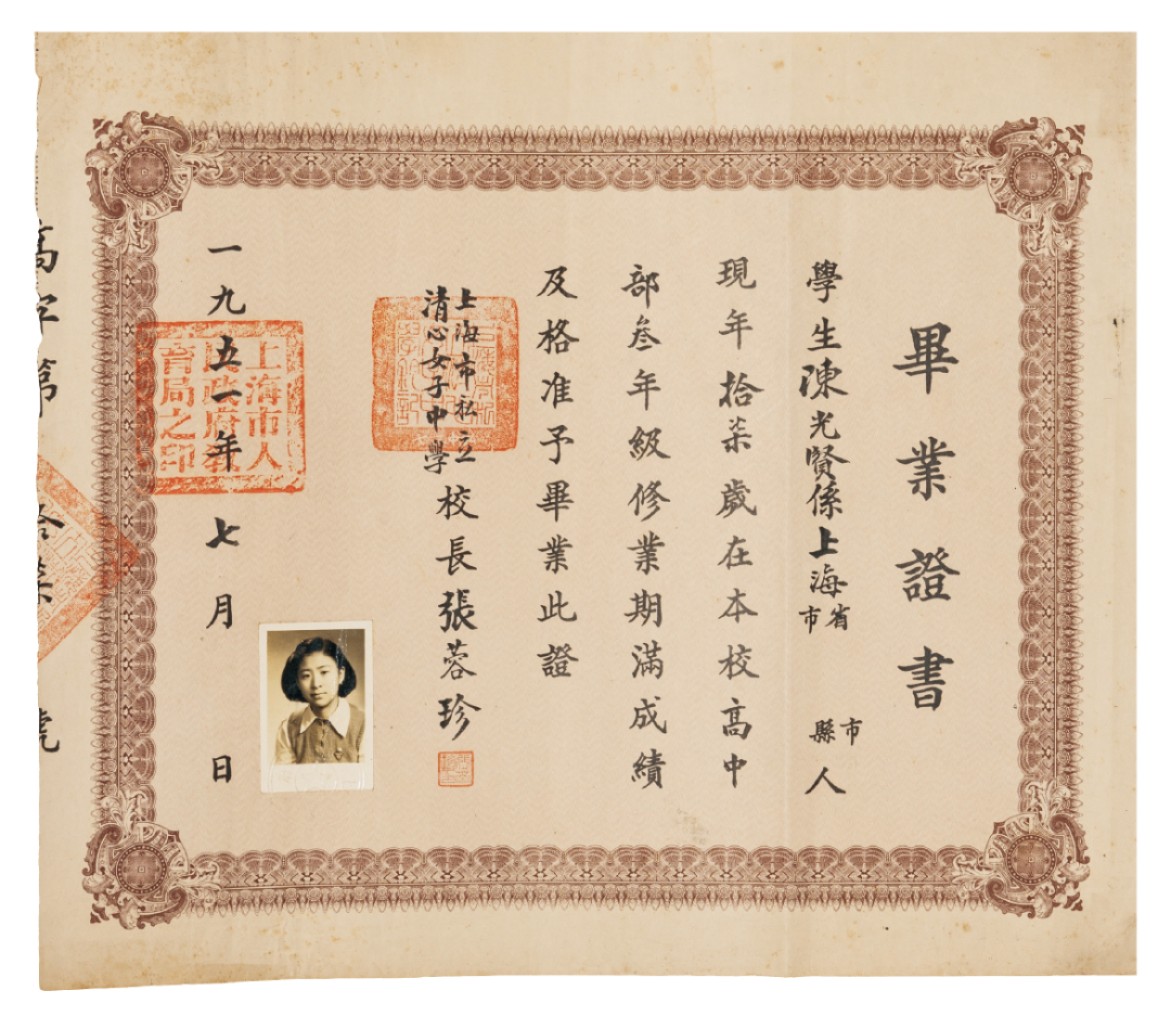 畢業證書
學生陳光賢係上海省市 市縣人
現年拾柒歲在本校高中
部叁年級修業期滿成績
及格准予畢業此證
上海市私立
清心女子中學
校長張蓉珍
一九五一年七月 日
上海市人
民政府教
育局之印
高字第 拾柒 號